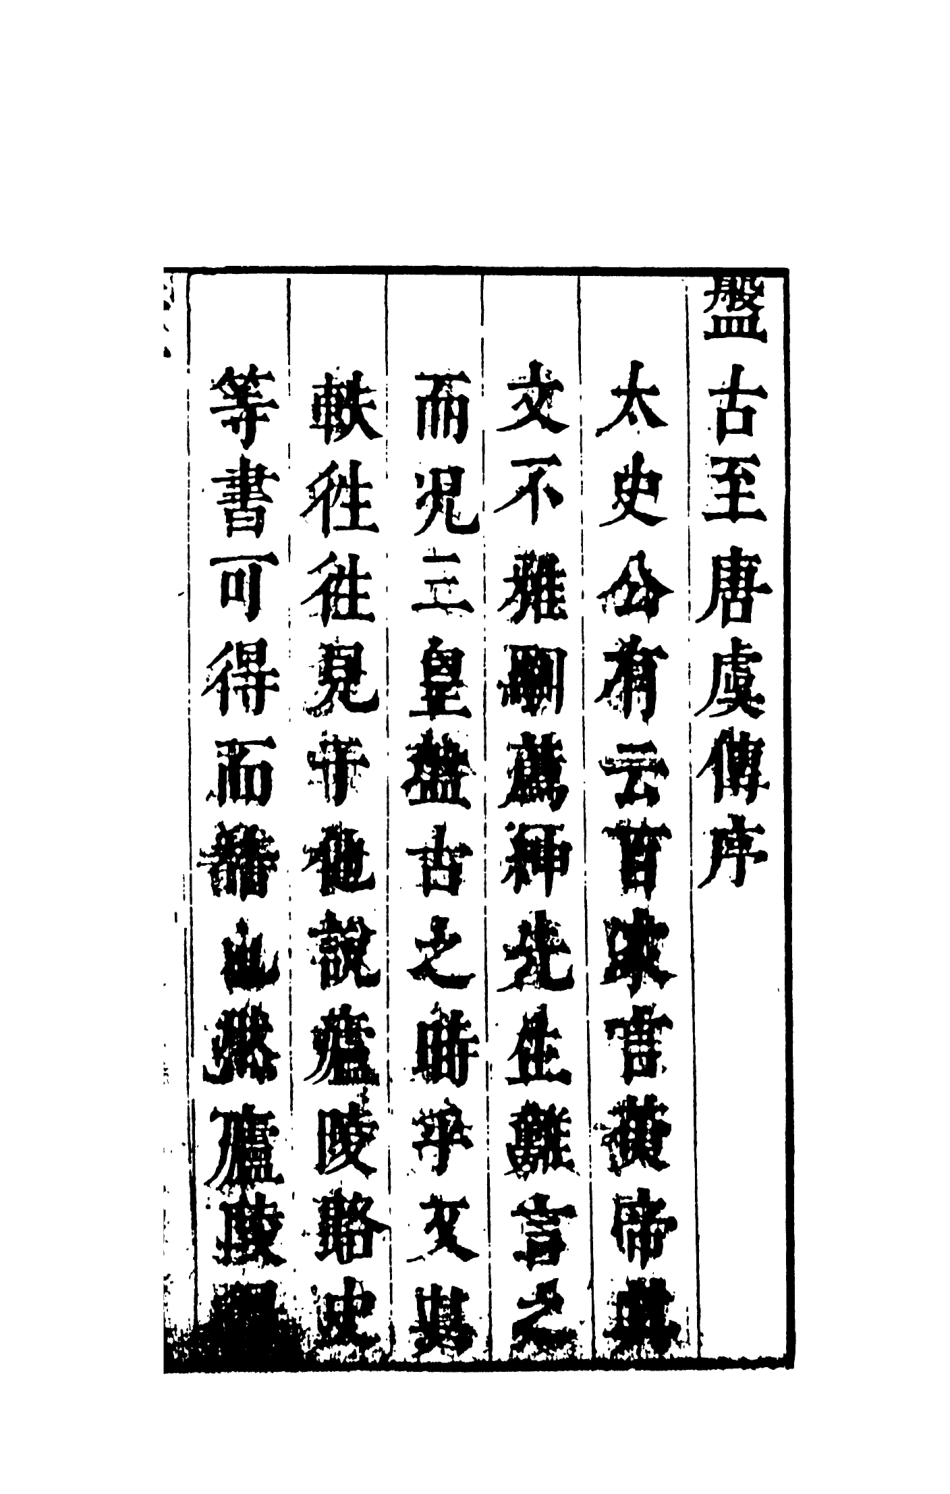 盤古至唐虞傳序
太史公有云百家言黃帝其
文不雅馴薦紳先生難言之
而况三皇盤古之時乎又其
軼徃徃見于他說廬陵路史
等書可得而繙也然廬陵